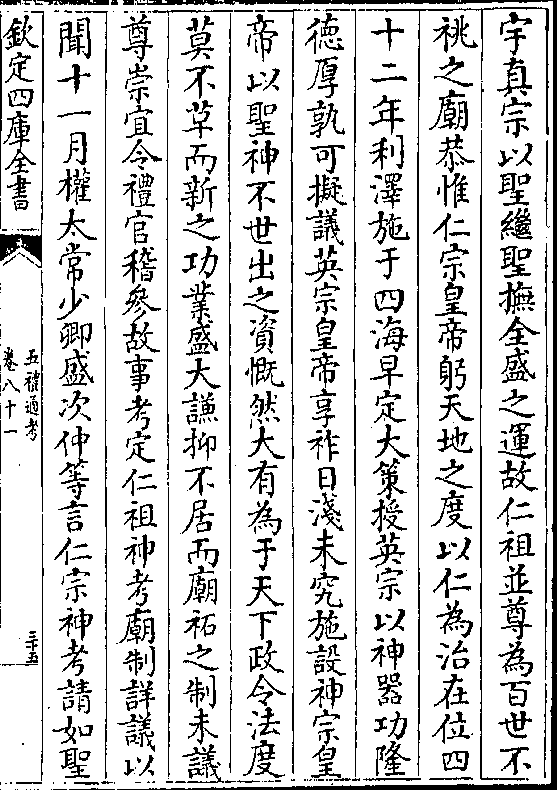 宇真宗以聖繼聖撫全盛之運故仁祖並尊為百世不
祧之廟恭惟仁宗皇帝躬天地之度以仁為治在位四
十二年利澤施于四海早定大策授英宗以神器功隆
德厚孰可擬議英宗皇帝享祚日淺未究施設神宗皇
帝以聖神不世出之資慨然大有為于天下政令法度
莫不革而新之功業盛大謙抑不居而廟祏之制未議
尊崇宜令禮官稽參故事考定仁祖神考廟制詳議以
聞十一月權太常少卿盛次仲等言仁宗神考請如聖
欽定四庫全書
五禮通考
卷八十一
三十五